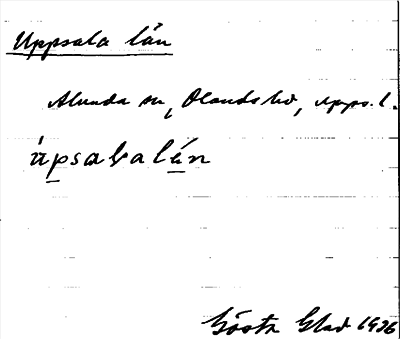 Uppsala län
Alunda sn, Olands hd, Upps. l.
úpsabalén
Gösta Glad 1936